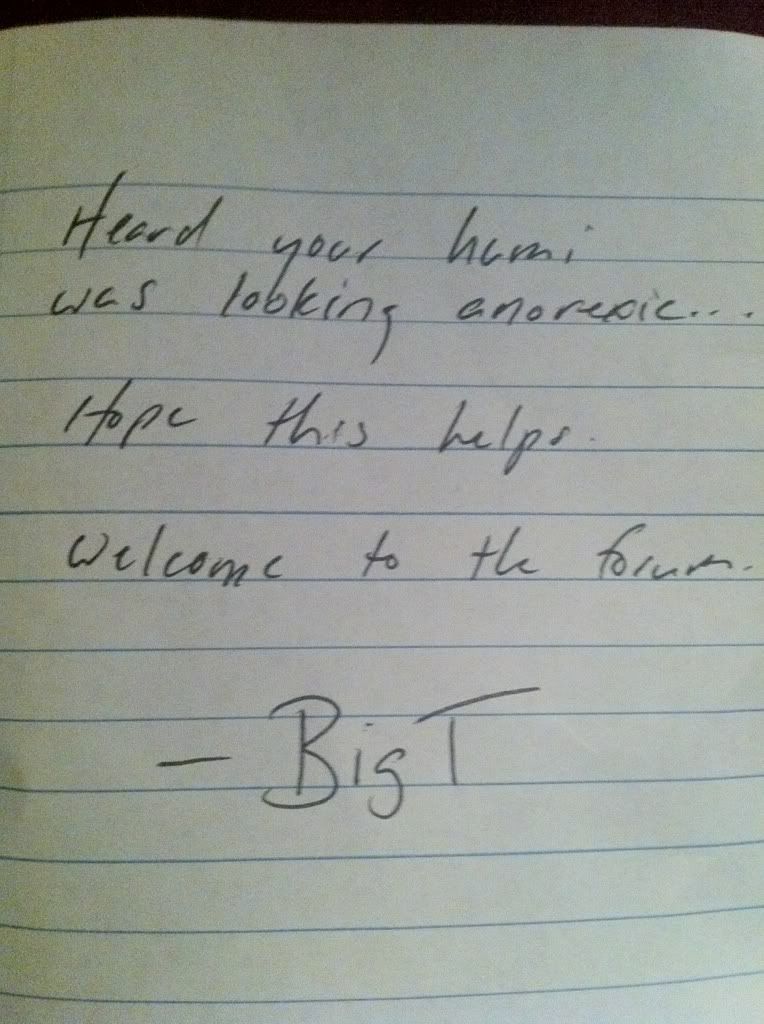 Heard your humi
was looking anorexic...
Hope this helps.
Welcome to the forum.
— Big T